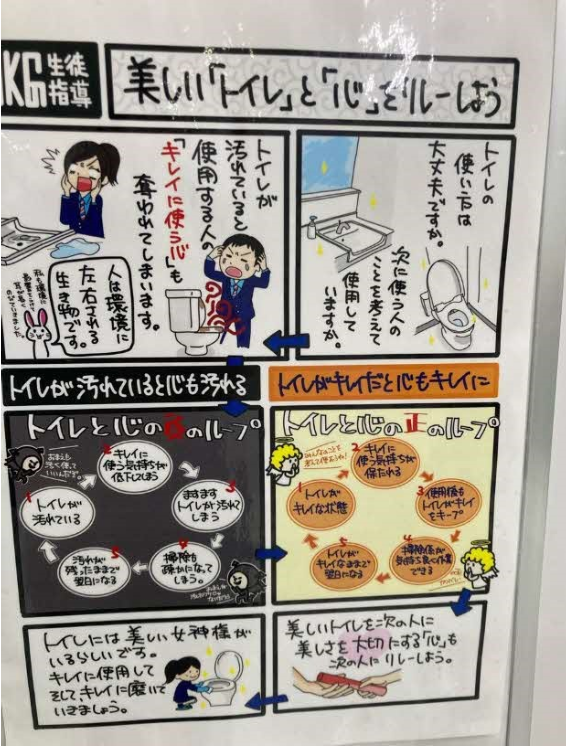 KG生徒指導
美しい「トイレ」と「心」をリレーしよう
トイレの
使い方は
大丈夫ですか。
次に使う人の
ことを考えて
使用して
いますか。
トイレが
汚れていると
使用する人の
「キレイに使う心」も
奪われてしまいます。
人は環境に
左右される
生き物です。
トイレが汚れていると心も汚れる
トイレと心の負のループ
1
トイレが
汚れている
2
キレイに
使う気持ちが
低下してしまう
3
ますます
トイレが汚れて
しまう
4
掃除も
疎かになって
しまう。
5
汚れが
残ったままで
翌日になる
トイレがキレイだと心もキレイに
トイレと心の正のループ
1
トイレが
キレイな状態
2
キレイに
使う気持ちが
保たれる
3
使用後も
トイレがキレイ
をキープ
4
掃除係が
気持ち良く作業
できる
5
トイレが
キレイなままで
翌日になる
美しいトイレを次の人に
美しさを大切にする「心」も
次の人にリレーしよう。
トイレには美しい女神様が
いるらしいです。
キレイに使用して
そして、キレイに磨いて
いきましょう。